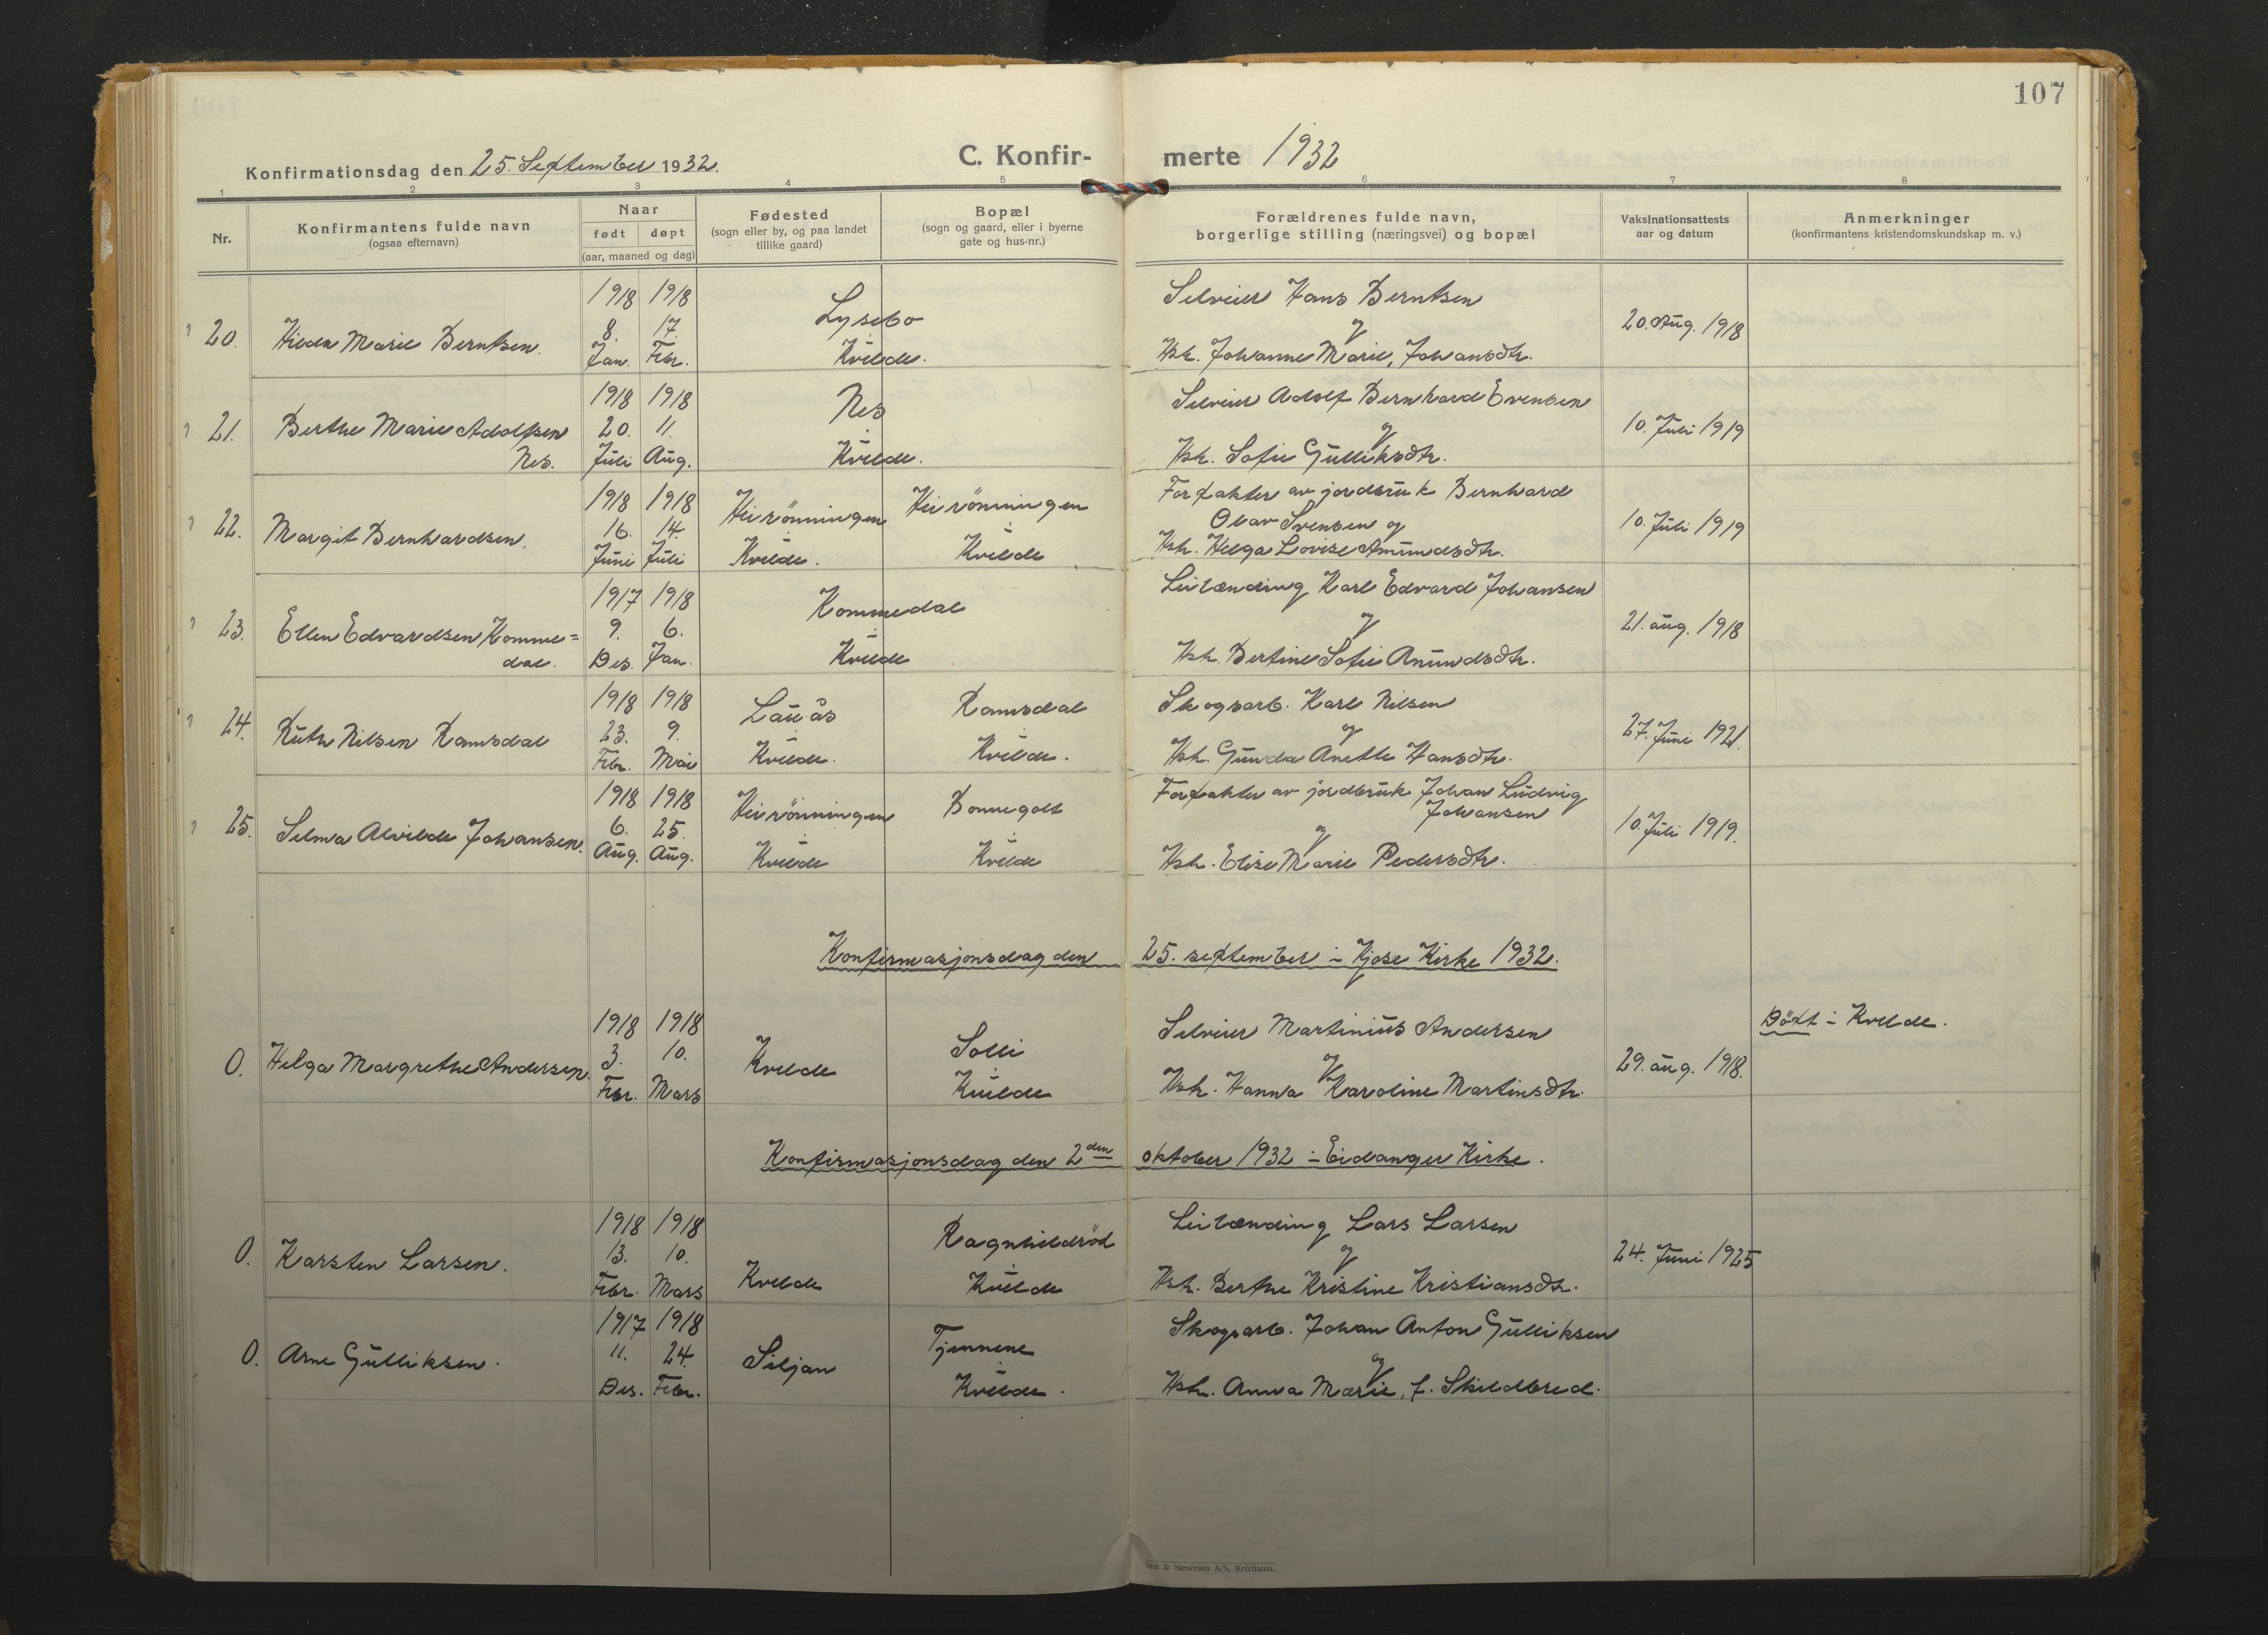 107
Konfirmationsdag den 25. September 1932.
C. Konfir- merte 1932
1 2 3 4 5 6 7 8
Nr.
Konfirmantens fulde navn
(ogsaa efternavn)
Naar
født døpt
(aar, maaned og dag)
Fødested
(sogn eller by, og paa landet
tillike gaard)
Bopæl
(sogn og gaard, eller i byerne
gate og hus-nr.)
Forældrenes fulde navn,
borgerlige stilling (næringsvei) og bopæl
Vaksinationsattests
aar og datum
Anmerkninger
(konfirmantens kristendomskundskap m. v.)
1918 1918 Lysebo Selveier Hans Berntsen
20. Hilda Marie Berntsen. 8. 17. og 20. Aug. 1918
Jan. Febr. Kvelde. Hstr. Johanne Marie, Johansdtr.
1918 1918 Nes Selveier Adolf Bernhard Evensen
21. Berthe Marie Adolfsen 20. 11. og 10. Juli 1919
Nes. Juli Aug. Kvelde. Hstr. Sofie Gulliksdtr.
1918 1918 Heirönningen Heirönningen Forpakter av jordbruk Bernhard
22. Margit Bernhardsen. 16. 14. Olav Svensen og 10. Juli 1919
Juni Juli Kvelde. Kvelde Hstr. Helga Lovise Amundsdtr.
1917 1918 Kommedal Leilænding Karl Edvard Johansen
23. Ellen Edvardsen Komme= 9. 6. og 21. aug. 1918
dal. Des. Jan. Kvelde Hstr. Bertine Sofie Anundsdtr.
1918 1918 Lauås Ramsdal Skogsarb. Karl Nilsen
24. Ruth Nilsen Ramsdal 23. 9. og 27. Juni 1921.
Febr. Mai Kvelde. Kvelde. Hstr. Gunda Anette Hansdtr.
1918 1918 Heirönningen Bonnegolt Forpakter av jordbruk Johan Ludvig
25. Selma Alvilde Johansen. 6. 25. Johansen 10. Juli 1919.
Aug. Aug. Kvelde Kvelde og
Hstr. Elise Marie Pedersdtr.
Konfirmasjonsdag den 25. september i Kjose Kirke 1932.
1918 1918 Solli Selveier Martinius Andersen Döpt i Kvelde.
0. Helga Margrethe Andersen. 3. 10. Kvelde og 29. aug. 1918.
Febr. Mars Kvelde Hstr. Hanna Karoline Martinsdtr.
Konfirmasjonsdag den 2den oktober 1932 i Eidanger Kirke.
1918 1918 Ragnhildröd Leilænding Lars Larsen
0. Karsten Larsen. 13. 10. og 24. Juni 1925
Febr. Mars Kvelde Kvelde Hstr. Berthe Kristine Kristiansdtr.
1917 1918 Tjennene Skogsarb. Johan Anton Gulliksen
0. Arne Gulliksen. 11. 24. Siljan og
Des. Febr. Kvelde. Hstr. Anna Marie, f. Skildbred.
Sem & Stenersen A/S, Kristiania.